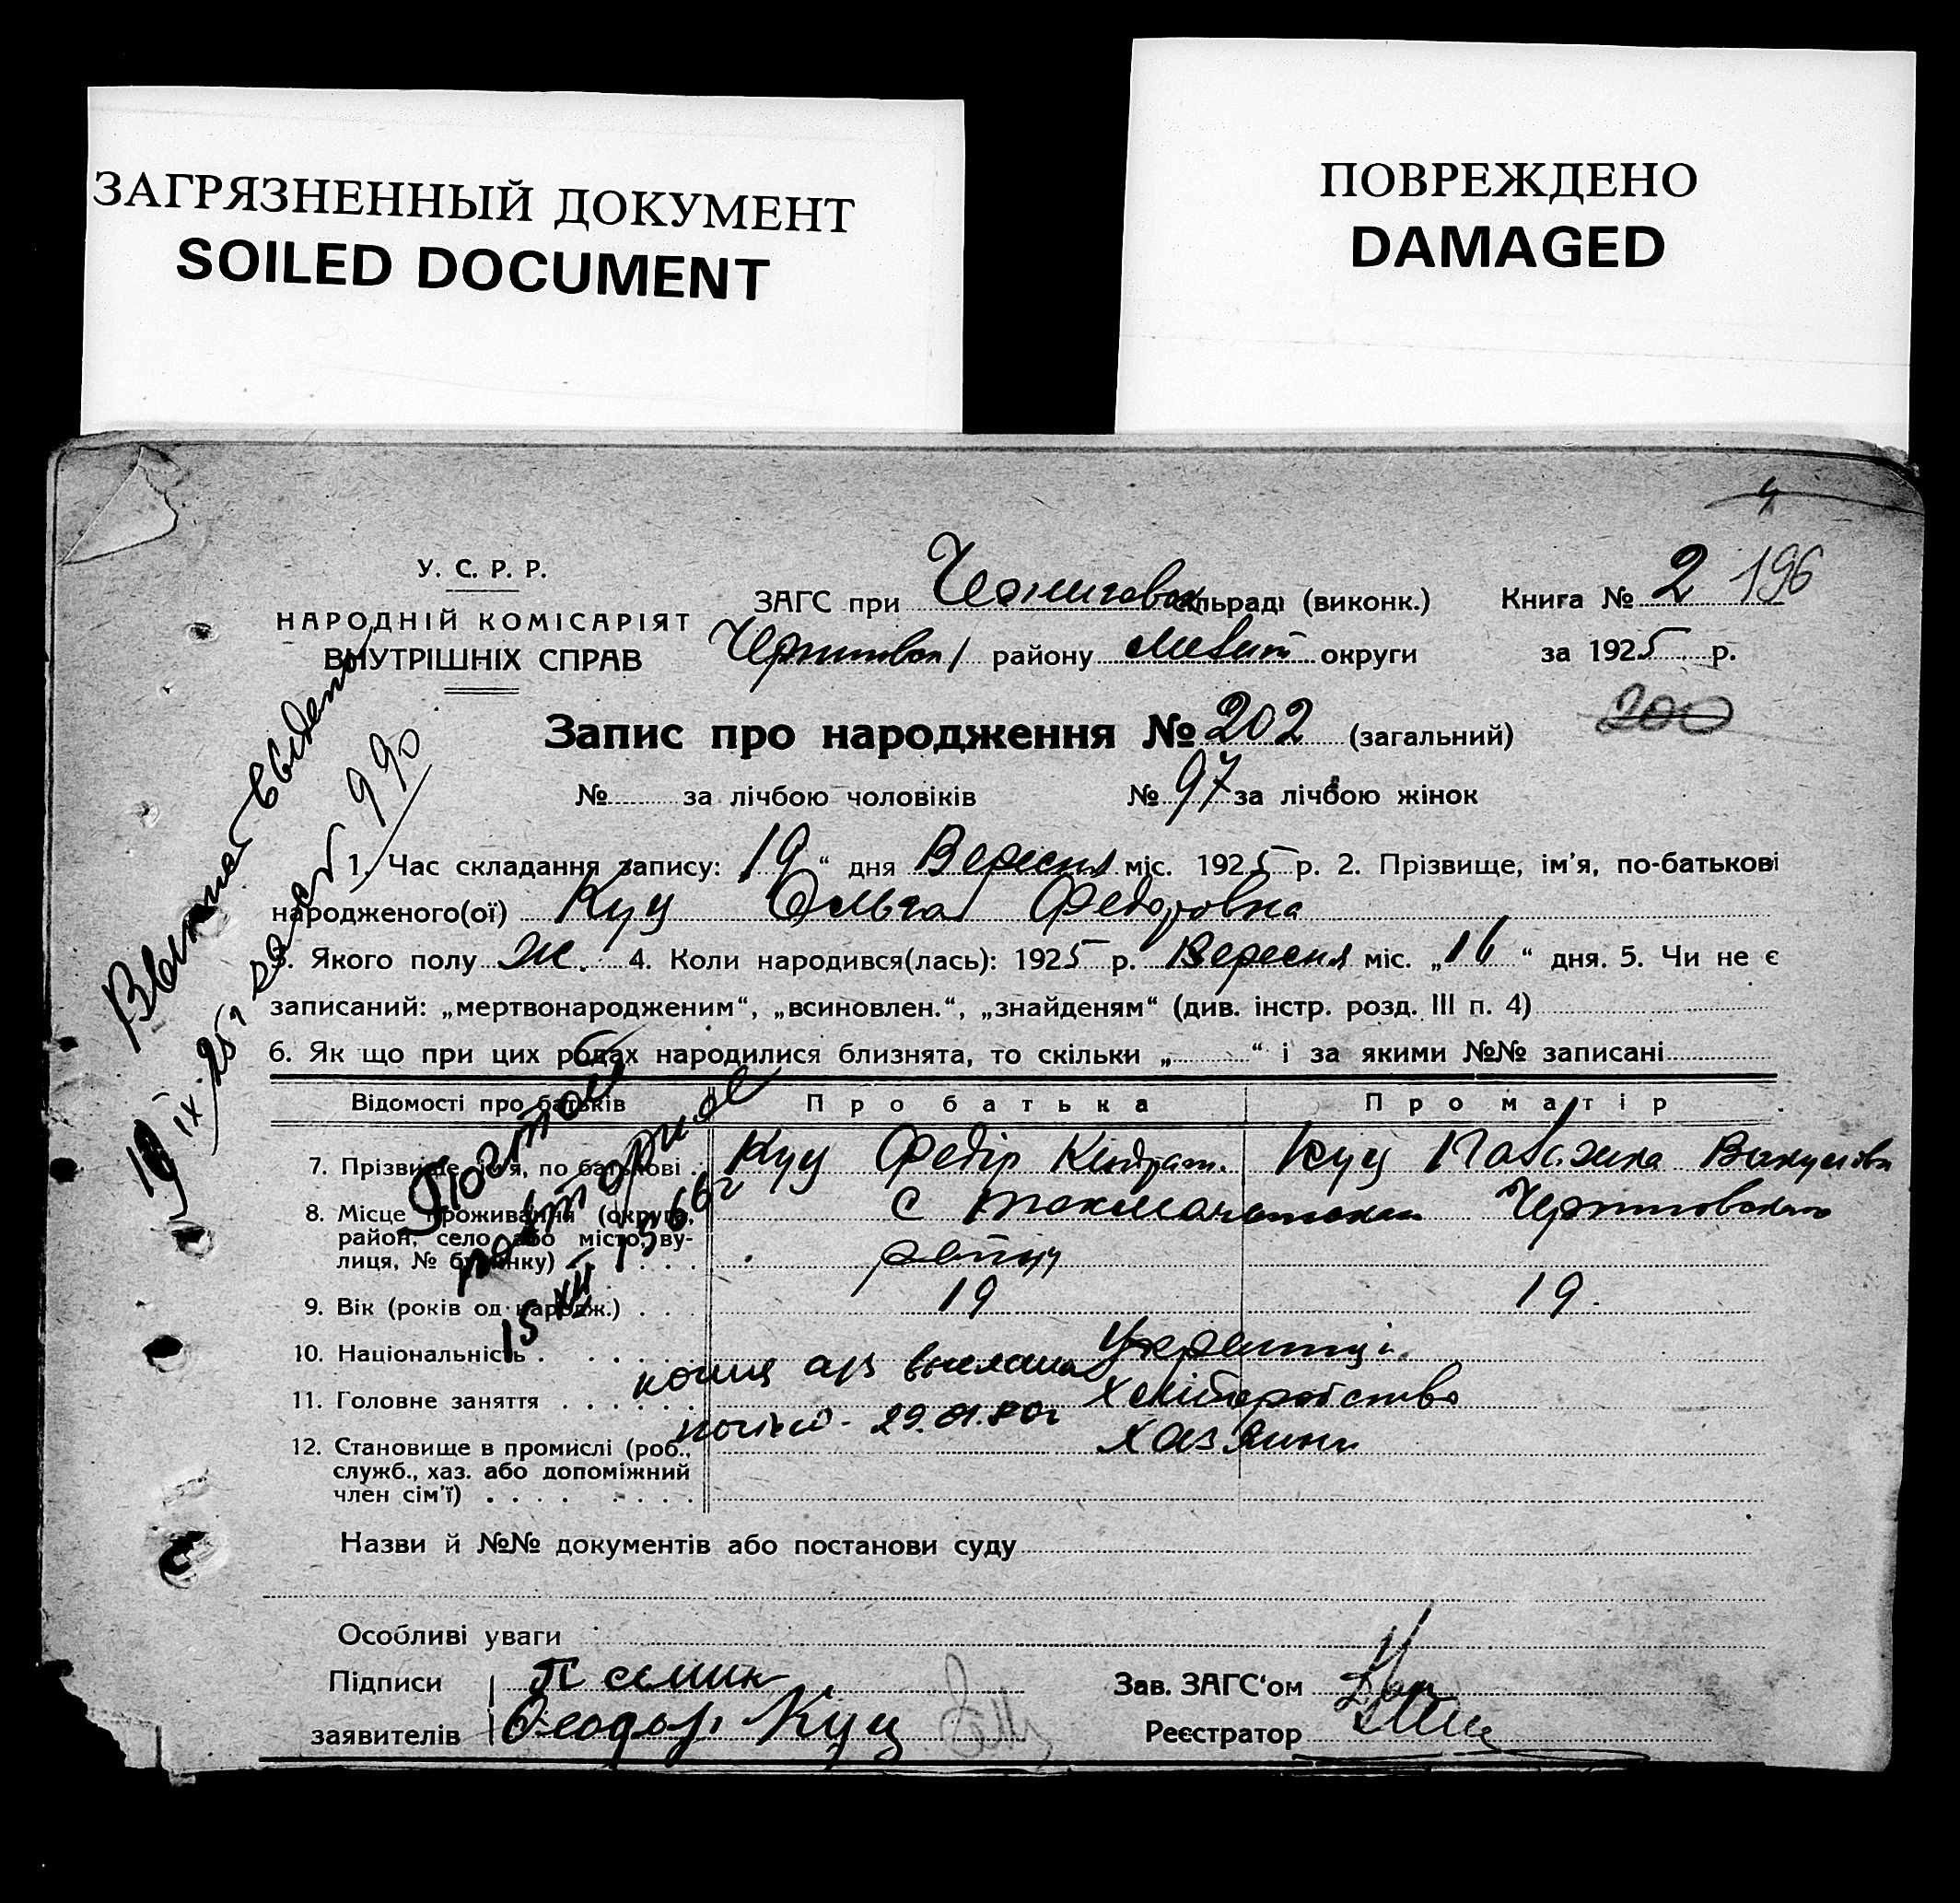 ЗАГРЯЗНЕННЫЙ ДОКУМЕНТ
SOILED DOCUMENT
ПОВРЕЖДЕНО
DAMAGED
У. С. Р. Р.
НАРОДНІЙ КОМІСАРІЯТ
ВНУТРІШНІХ СПРАВ
ЗАГС при сільраді (виконк.)
району округи
Книга № 2 196
за 1925 р.
200
Запис про народження № 202 (загальний)
№ за лічбою чоловіків № 97 за лічбою жінок
1. Час складання запису: 19 “ дня Вересня міс. 1925 р. 2. Прізвище, ім’я, по-батькові
народженого(ої) Куц Ольга Федоровна
3. Якого полу ж. 4. Коли народився(лась): 1925 р. Вересня міс. „16“ дня. 5. Чи не є
записаний: „мертвонародженим“, „всиновлен.“, „знайденям“ (див. інстр. розд. III п. 4)
6. Як що при цих родах народилися близнята, то скільки „ “ і за якими №№ записані
Відомості про батьків Про батька Про матір
7. Прізвище, ім’я, по батькові Куц Федір Кіндрат. Куц
8. Місце проживання (округа, с
район, село або місто, ву-
лиця, № будинку)
9. Вік (років од народж.) 19 19.
10. Національність Українці
11. Головне заняття Хліборобство
12. Становище в промислі (роб., Хазяини
служб., хаз. або допоміжний
член сім’ї)
990
повторное
15 XII 1966 г
29.01.80г
Назви й №№ документів або постанови суду
Особливі уваги
Підписи
заявителів Феодор Куц
Зав. ЗАГС‘ом
Реєстратор